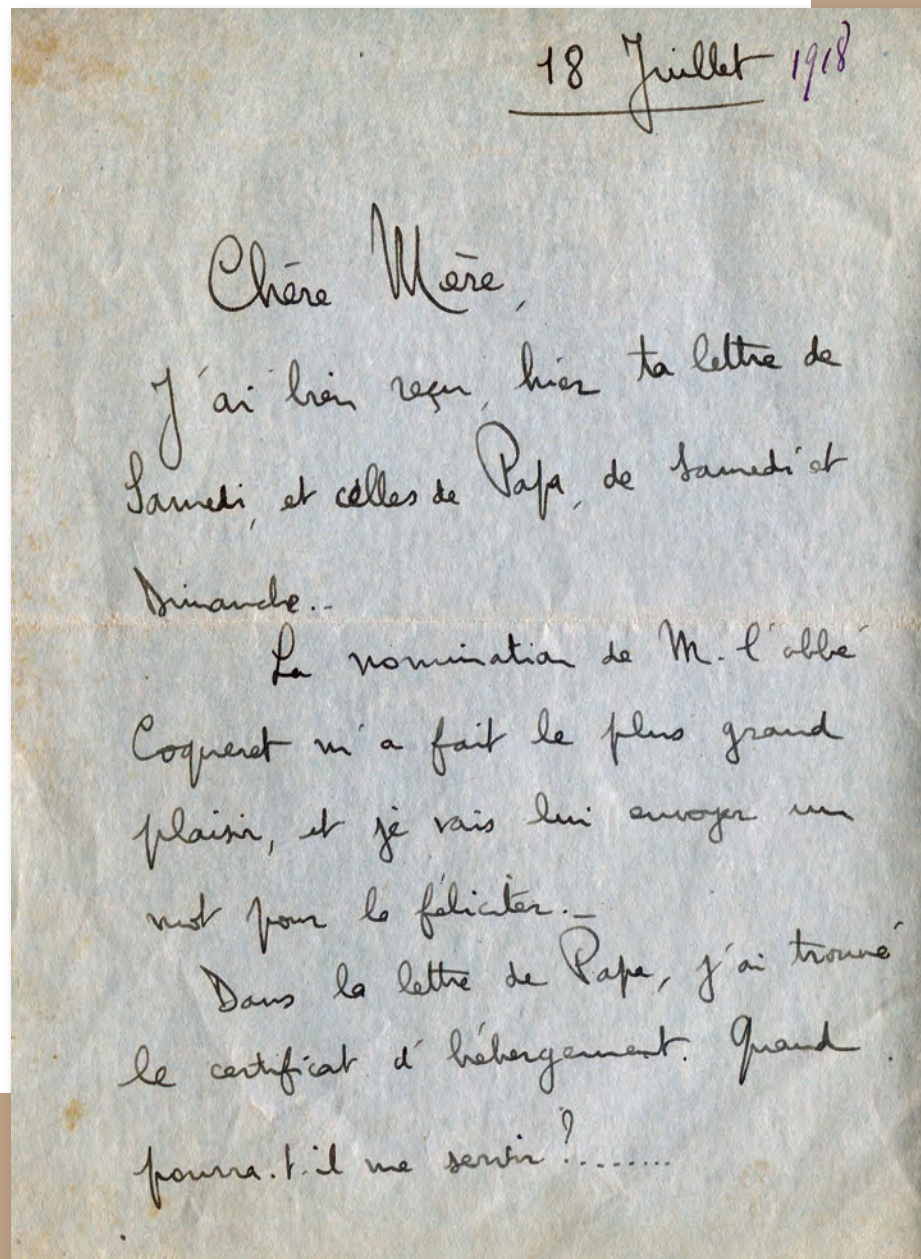 18 Juillet 1918
Chère Mère,
J'ai bien reçu, hier ta lettre de
Samedi, et celles de Papa, de Samedi et
Dimanche..
La nomination de M. l'abbé
Coqueret m'a fait le plus grand
plaisir, et je vais lui envoyer un
mot pour le féliciter._
Dans la lettre de Papa, j'ai trouvé
le certificat d'hébergement. Quand
pourra.t.il me servir ?........